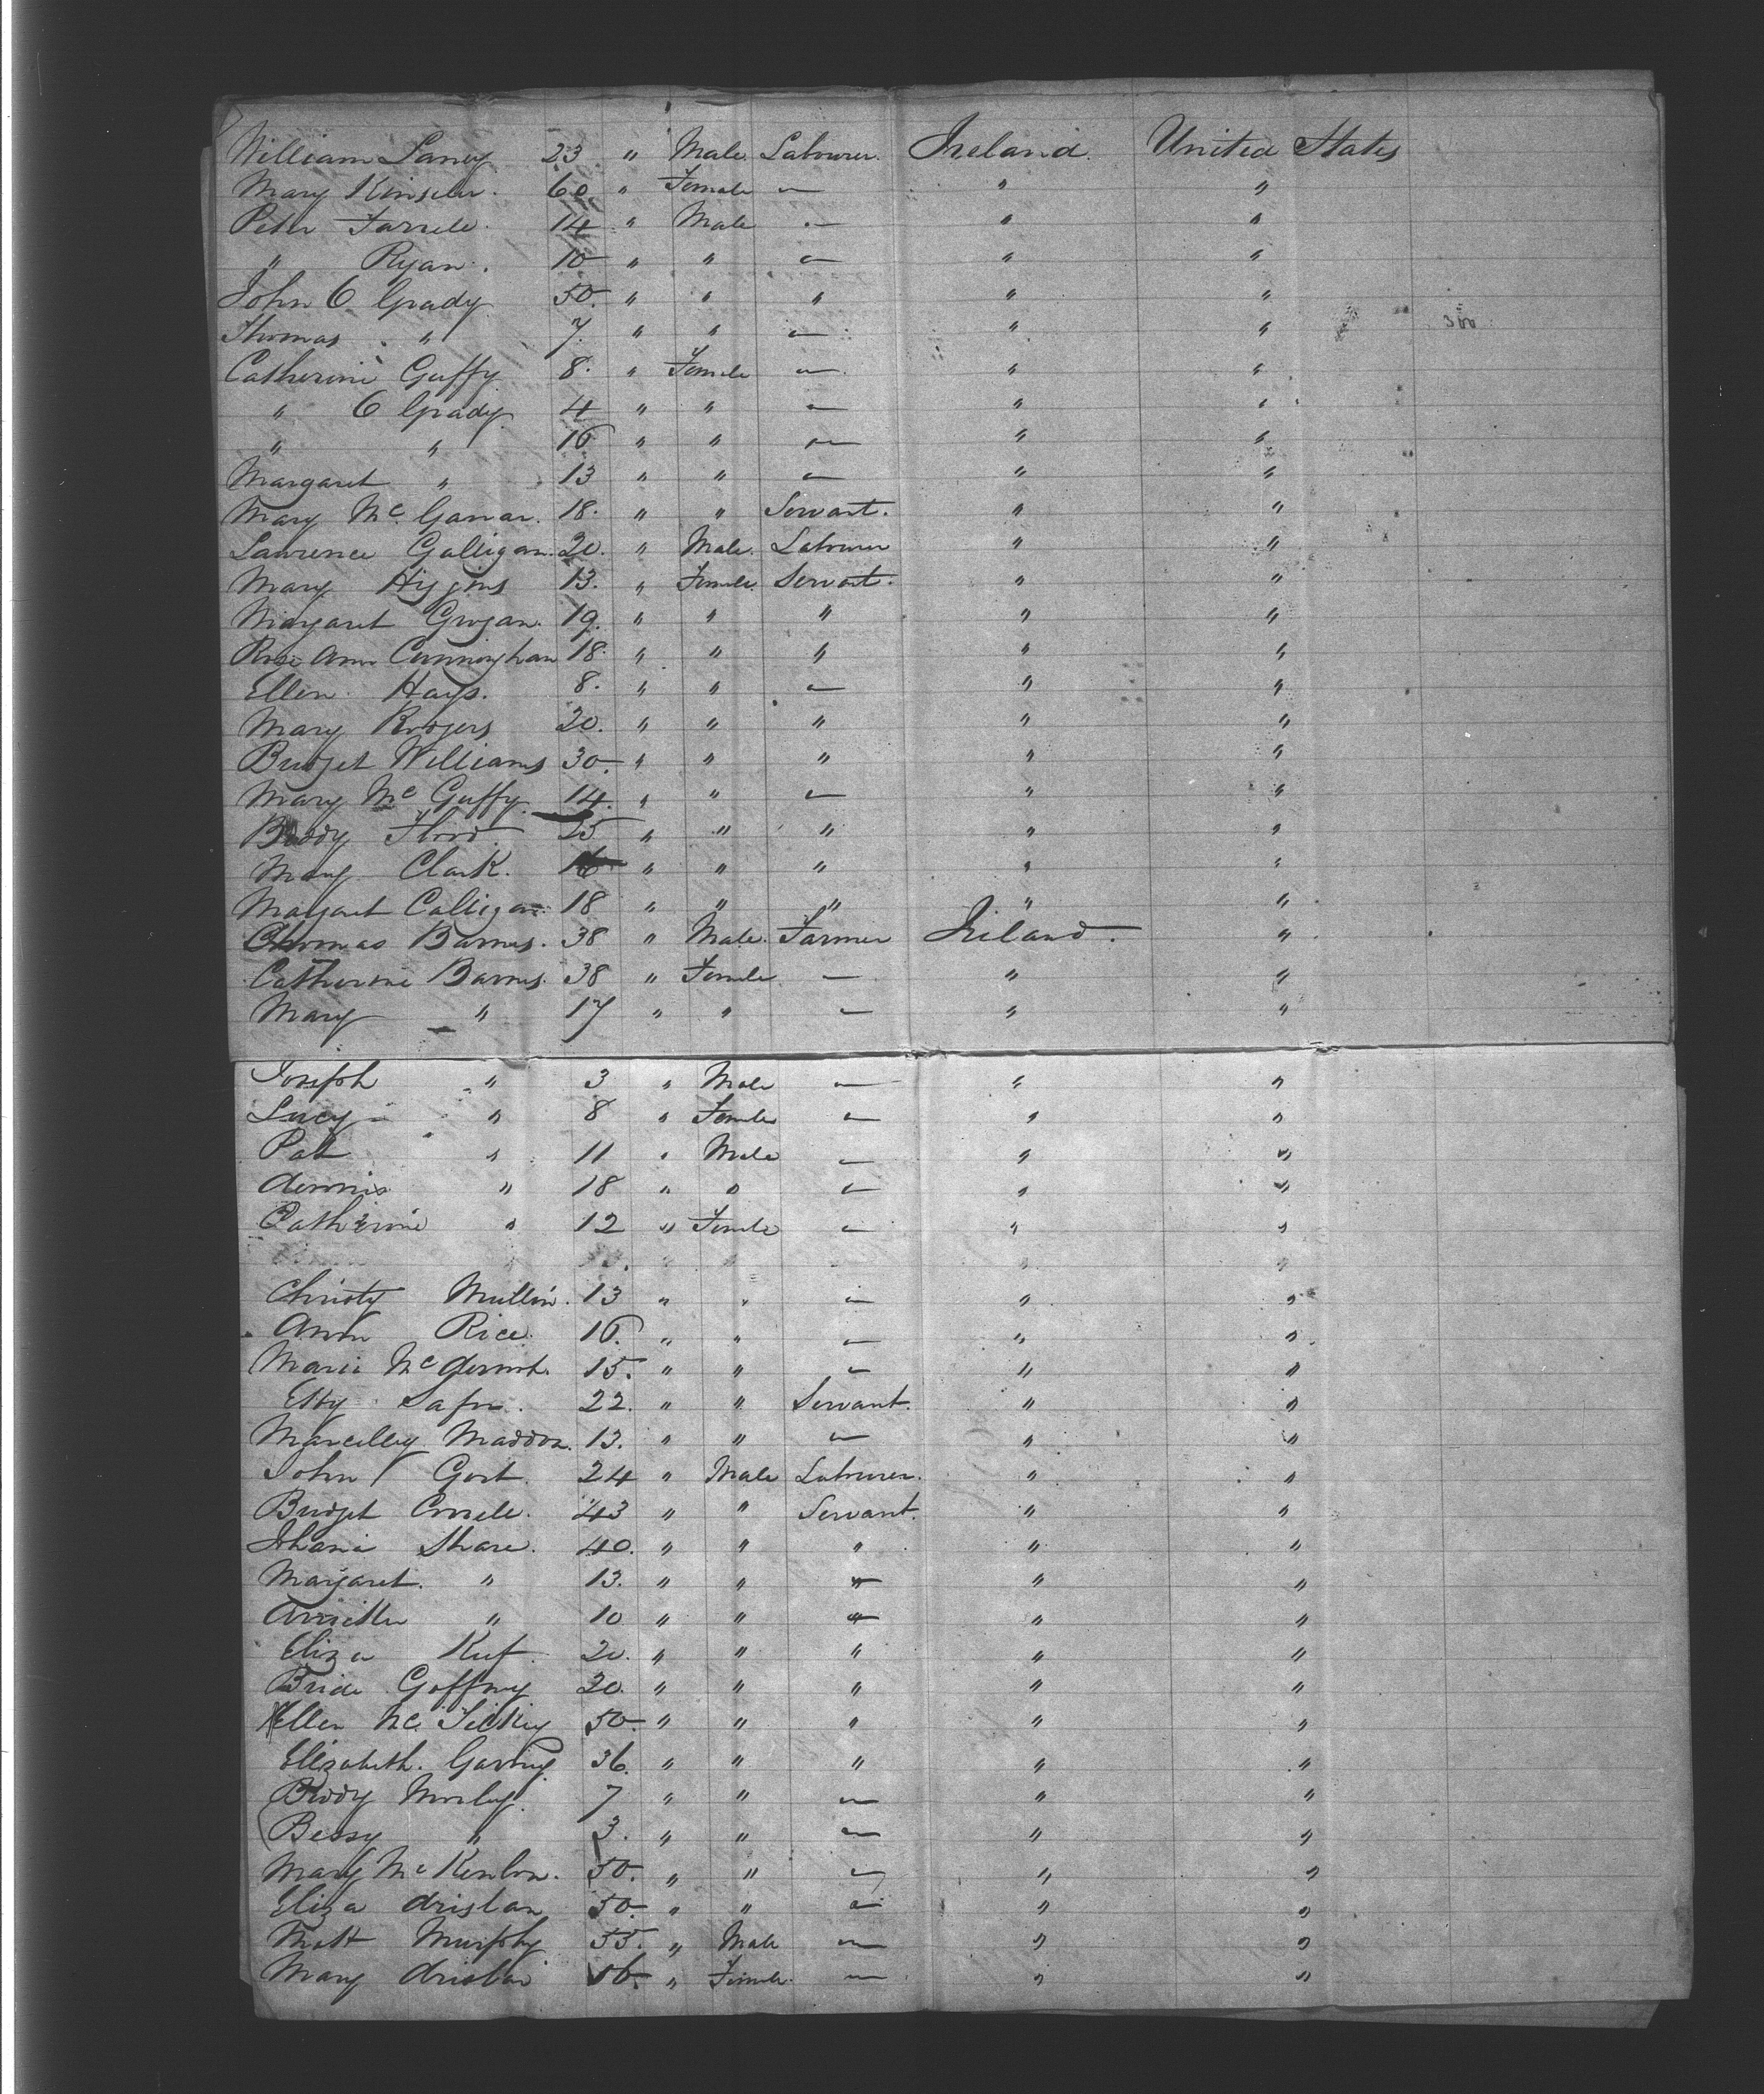 William Laney 23 " Male Labourer. Ireland. United States
Mary Kinseler. 60 " Female — " "
Peter Farrele. 14 " Male — " "
" Ryan. 10 " " — " "
John O Grady 50. " " " " "
Thomas " 7. " " — " "
Catherine Guffy 8. " Female — " "
" O Grady 4 " " — " "
" " 16 " " — " "
Margaret " 13 " " — " "
Mary Mc Garrar. 18. " " Servant. " "
Lawrence Galligan. 20. " Male. Labourer " "
Mary Higgins 13. " Female. Servant. " "
Margaret Grogan. 19. " " " " "
Rose Ann Cunningham 18. " " " " "
Ellen Hays. 8. " " — " "
Mary Rodgers 20. " " " " "
Bridget Williams 30. " " " " "
Mary Mc Guffy. 14. " " — " "
Biddy Flood 25 " " " " "
Mary Clark. 16 " " " " "
Margaret Calligan. 18 " " " " "
Thomas Barnes. 38 " Male. Farmer Ireland. "
Catherine Barnes. 38 " Female — " "
Mary " 17 " " — " "
Joseph " 3 " Male — " "
Lucy " 8 " Female — " "
Pat " 11 " Male — " "
dennis " 18 " " — " "
Catherine " 12 " Female — " "
Christy Mullin. 13 " " — " "
Ann Rice. 16. " " — " "
Maria Mc dermot. 15. " " — " "
Etty 22. " " Servant. " "
Marcelley Maddon. 13. " " — " "
John Gort. 24 " Male Labourer. " "
Bridget Correle. 43 " " Servant. " "
Johana Share. 40. " " " " "
Margaret. " 13. " " — " "
" 10 " " — " "
Eliza 20. " " " " "
Bride Gaffney 20. " " " " "
Ellen Mc 50. " " " " "
Elizabeth. 36. " " " " "
Biddy Morley. 7 " " — " "
Bessy " 3. " " — " "
Mary Mc Kenlon. 50. " " — " "
Eliza drislan 50. " " — " "
Matt Murphy 55. " Male — " "
Mary drislan " Female. — " "